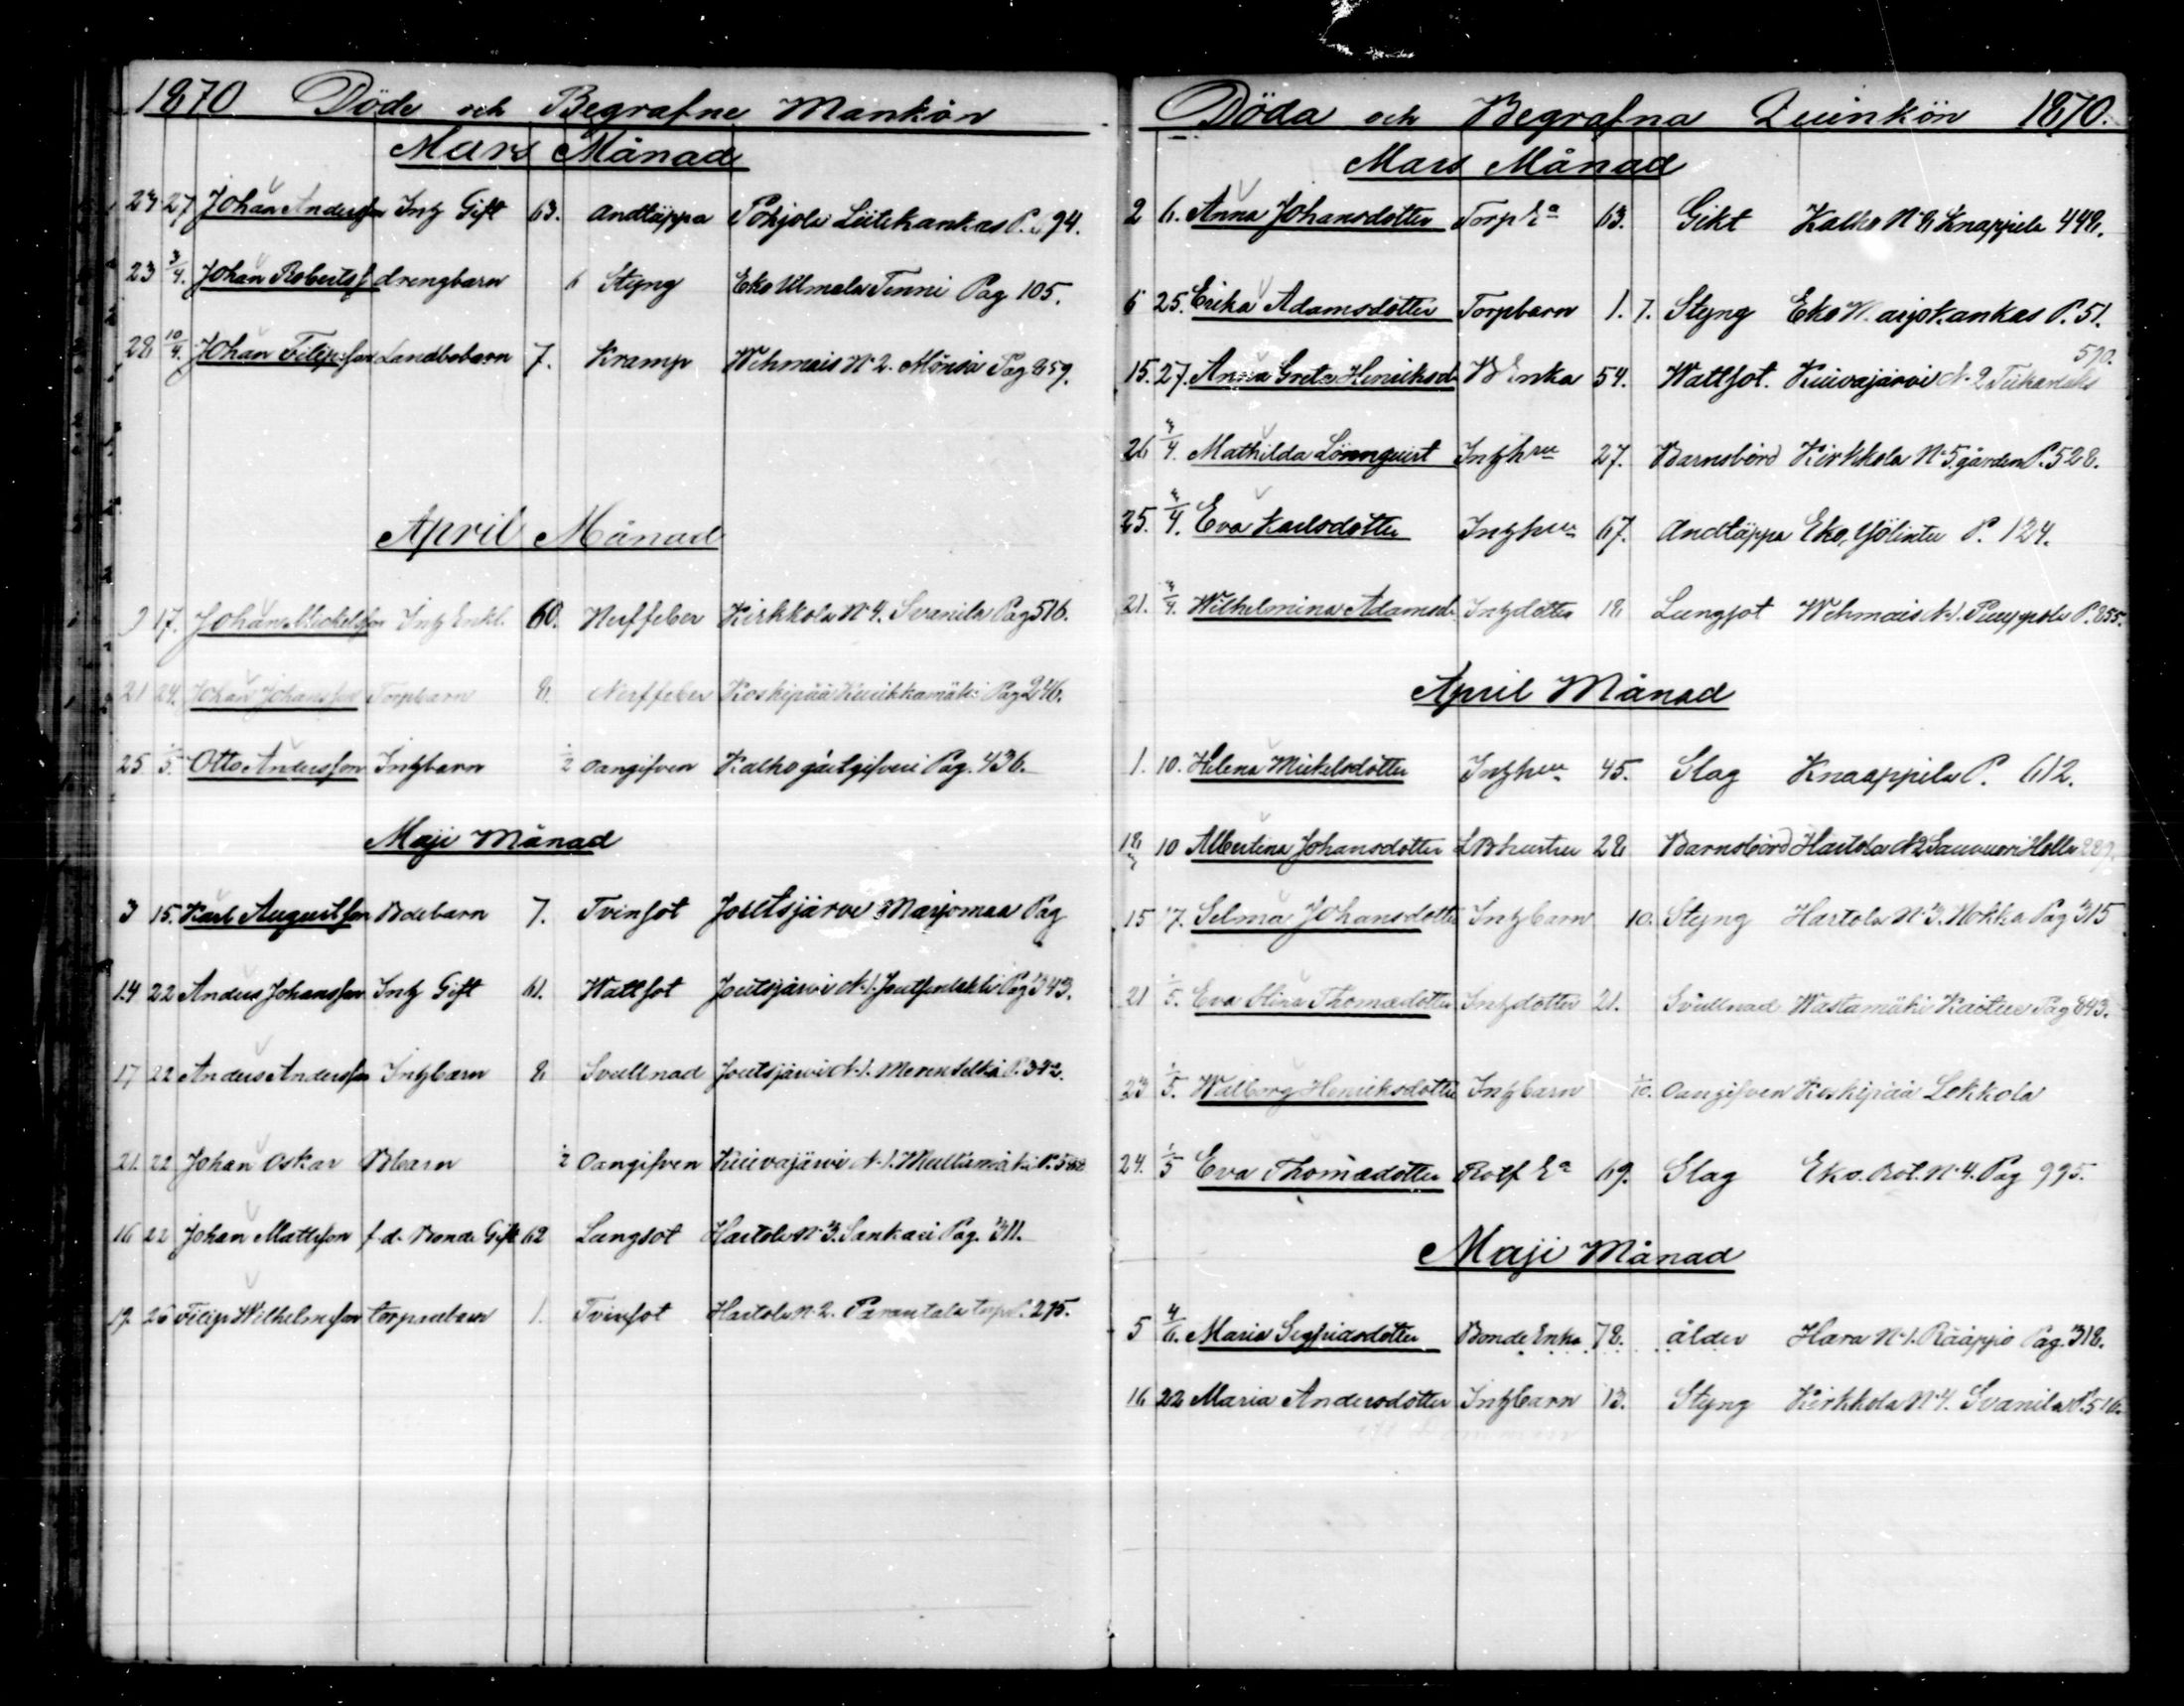 1870 Döde och Begrafne Mankön
Mars Månad
23 27 Johan Andersson Inh Gift 63. Andtäppa Pohjola Liitekankas P. 94.
23 3/4. Johan Robertss. drengbarn 6 Styng Eko Ulmala Tenni Pag 105.
28 10/4. Johan Filipsson Landbobarn 7. Kramp Wehmais N 2. Mönsä Pag 859.
April Månad
9 17. Johan Mickelsson Inh Enkl. 60. Nerffeber Kirkkola N 4. Svanila Pag 516.
21 24. Johan Johansson Torpbarn 8. Nerffeber Koskipää Kuukkamäki Pag 246.
25 1/5. Otto Andersson Inhbarn 1/2 oangifven Kalho gästgifveri Pag. 436.
Maji Månad
3 15. Karl Augustsson Bdebarn 7. Tvinsot Joutsjärvi Marjomaa Pag
14 22 Anders Johansson Inh Gift 61. Wattsot Joutsjärvi N 1. Joutsenlahti Pag 343.
17 22 Anders Andersson Inhbarn 8 Svullnad Joutsjärvi N 1. Merenselkä P. 342.
21. 22 Johan Oskar Bbarn 1/2 Oangifven Kuivajärvi N 1. Multamäki P.
16 22 Johan Mattsson f.d. Bonde Gift 62 Lungsot Hartola N 3. Sankari Pag. 311.
19. 26 Filip Wilhelmsson torparebarn 1. Tvinsot Hartola N 2. Parantala torp P. 275.
Döda och Begrafna Quinkön 1870.
Mars Månad
2 6. Anna Johansdotter Torp Ea 63. Gikt Kalho N 8 Knappila 448.
6 25. Erika Adamsdotter Torpbarn 1. 7. Styng Eko Harjokankas P. 51.
570.
15. 27. Anna Greta Henriksd. B Enka 54. Wattsot. Kuivajärvi N 2
26 3/4. Mathilda Lönnquist Inhhru 27. Barnsbörd Kirkkola N 5. gården P. 528.
25. 3/4. Eva Karlsdotter Inhhru 67. Andtäppa Eko, Ylölinter P. 124.
21. 3/4. Wilhelmina Adamsd. Inhdotter 18 Lungsot Wehmais N 1. Puuppola P. 855.
April Månad
1. 10. Helena Mickelsdotter Inhhru 45. Slag Knaappila P. 612.
18 10 Albertina Johansdotter LBhustru 28 Barnsbörd Hartola N 2 Sauvuori Holla 289.
15 17. Selma Johansdotter Inhbarn 10. Styng Hartola N 3. Nokka Pag 315
21 1/5. Eva Thomasdotter Inhdotter 21. Svullnad Wastamäki Kaitue Pag 843.
23 1/5. Walborg Henriksdotter Inhbarn 1/10. oangifven Koskipää Lekkola
24. 1/5 Eva Thomasdotter Rotf Ea 69. Slag Eko. Rot. N 4. Pag 995.
Maji Månad
5 4/6. Maria Sigfridsdotter Bonde Enka 78. ålder Hara N 1. Rääppiö Pag. 318.
16 22 Maria Andersdotter Inhbarn 13. Styng Kirkkola N 4. Svanila P. 516.